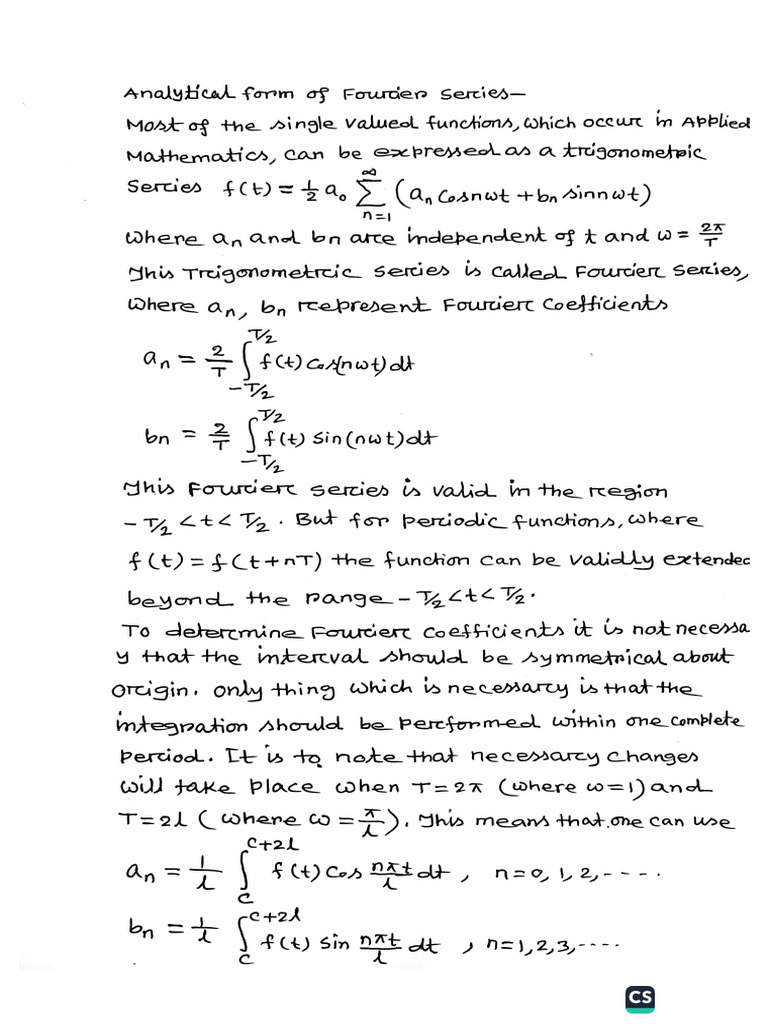 Analytical form of Fourier Series—
Most of the single valued functions, which occur in Applied
Mathematics, can be expressed as a trigonometric
Series f(t) = 1/2 a₀ ∑_{n=1}^{∞} (aₙ cosnωt + bₙ sinnωt)
Where aₙ and bₙ are independent of t and ω = 2π/T
This Trigonometric Series is called Fourier Series,
Where aₙ, bₙ represent Fourier Coefficients
aₙ = 2/T ∫_{-T/2}^{T/2} f(t) cos(nωt) dt
bₙ = 2/T ∫_{-T/2}^{T/2} f(t) sin(nωt) dt
This Fourier series is valid in the region
-T/2 < t < T/2. But for periodic functions, where
f(t) = f(t+nT) the function can be validly extended
beyond the range -T/2 < t < T/2.
To determine Fourier Coefficients it is not necessa
y that the interval should be symmetrical about
origin. only thing which is necessary is that the
integration should be performed within one complete
period. It is to note that necessary changes
will take place when T = 2π (where ω=1) and
T = 2l (where ω = π/l). This means that one can use
aₙ = 1/l ∫_{c}^{c+2l} f(t) cos nπt/l dt, n=0, 1, 2, ----.
bₙ = 1/l ∫_{c}^{c+2l} f(t) sin nπt/l dt, n=1,2,3, ----.
CS